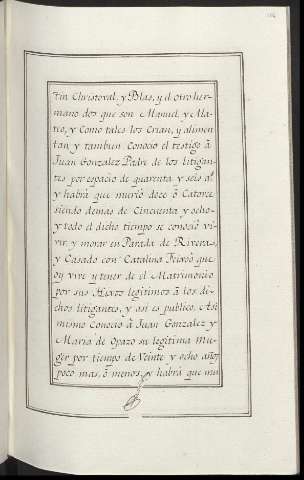 tin Christoval, y Blas, y el otro her-
mano dos que son Manuel, y Ma-
teo, y Como tales los Crian, y alimen
tan y tambien Conocio el testigo à
Juan Gonzalez Padre de los litigan-
tes por espacio de quarenta y seis aˢ
y habrà que muriò doce ò Catorce
siendo demas de Cincuenta y ocho
y todo el dicho tiempo se conociò vi-
vir, y morar en Parada de Riveras
y Casado con Catalina que
oy vive y tener de el Matrimonio
por sus Hixos legitimos à los di-
chos litigantes, y asi es publico. Asi
mismo Conociò à Juan Gonzalez y
Maria de Opazo su legitima Mu-
ger por tiempo de Veinte y ocho años
poco mas, ò menos, y habrà que mu